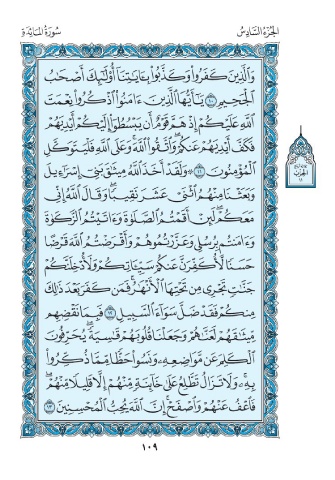 الجزء السادس
سورة المائدة
وَالَّذِينَ كَفَرُوا وَكَذَّبُوا بِآيَاتِنَا أُولَٰئِكَ أَصْحَابُ
الْجَحِيمِ ١٠ يَا أَيُّهَا الَّذِينَ آمَنُوا اذْكُرُوا نِعْمَتَ
اللَّهِ عَلَيْكُمْ إِذْ هَمَّ قَوْمٌ أَن يَبْسُطُوا إِلَيْكُمْ أَيْدِيَهُمْ
فَكَفَّ أَيْدِيَهُمْ عَنكُمْ ۖ وَاتَّقُوا اللَّهَ ۚ وَعَلَى اللَّهِ فَلْيَتَوَكَّلِ
الْمُؤْمِنُونَ ١١ ۞ وَلَقَدْ أَخَذَ اللَّهُ مِيثَاقَ بَنِي إِسْرَائِيلَ
وَبَعَثْنَا مِنْهُمُ اثْنَيْ عَشَرَ نَقِيبًا ۖ وَقَالَ اللَّهُ إِنِّي
مَعَكُمْ ۖ لَئِنْ أَقَمْتُمُ الصَّلَاةَ وَآتَيْتُمُ الزَّكَاةَ
وَآمَنتُم بِرُسُلِي وَعَزَّرْتُمُوهُمْ وَأَقْرَضْتُمُ اللَّهَ قَرْضًا
حَسَنًا لَّأُكَفِّرَنَّ عَنكُمْ سَيِّئَاتِكُمْ وَلَأُدْخِلَنَّكُمْ
جَنَّاتٍ تَجْرِي مِن تَحْتِهَا الْأَنْهَارُ ۚ فَمَن كَفَرَ بَعْدَ ذَٰلِكَ
مِنكُمْ فَقَدْ ضَلَّ سَوَاءَ السَّبِيلِ ١٢ فَبِمَا نَقْضِهِم
مِّيثَاقَهُمْ لَعَنَّاهُمْ وَجَعَلْنَا قُلُوبَهُمْ قَاسِيَةً ۖ يُحَرِّفُونَ
الْكَلِمَ عَن مَّوَاضِعِهِ ۙ وَنَسُوا حَظًّا مِّمَّا ذُكِّرُوا
بِهِ ۚ وَلَا تَزَالُ تَطَّلِعُ عَلَىٰ خَائِنَةٍ مِّنْهُمْ إِلَّا قَلِيلًا مِّنْهُمْ ۖ
فَاعْفُ عَنْهُمْ وَاصْفَحْ ۚ إِنَّ اللَّهَ يُحِبُّ الْمُحْسِنِينَ ١٣
الحزب
١٠٩